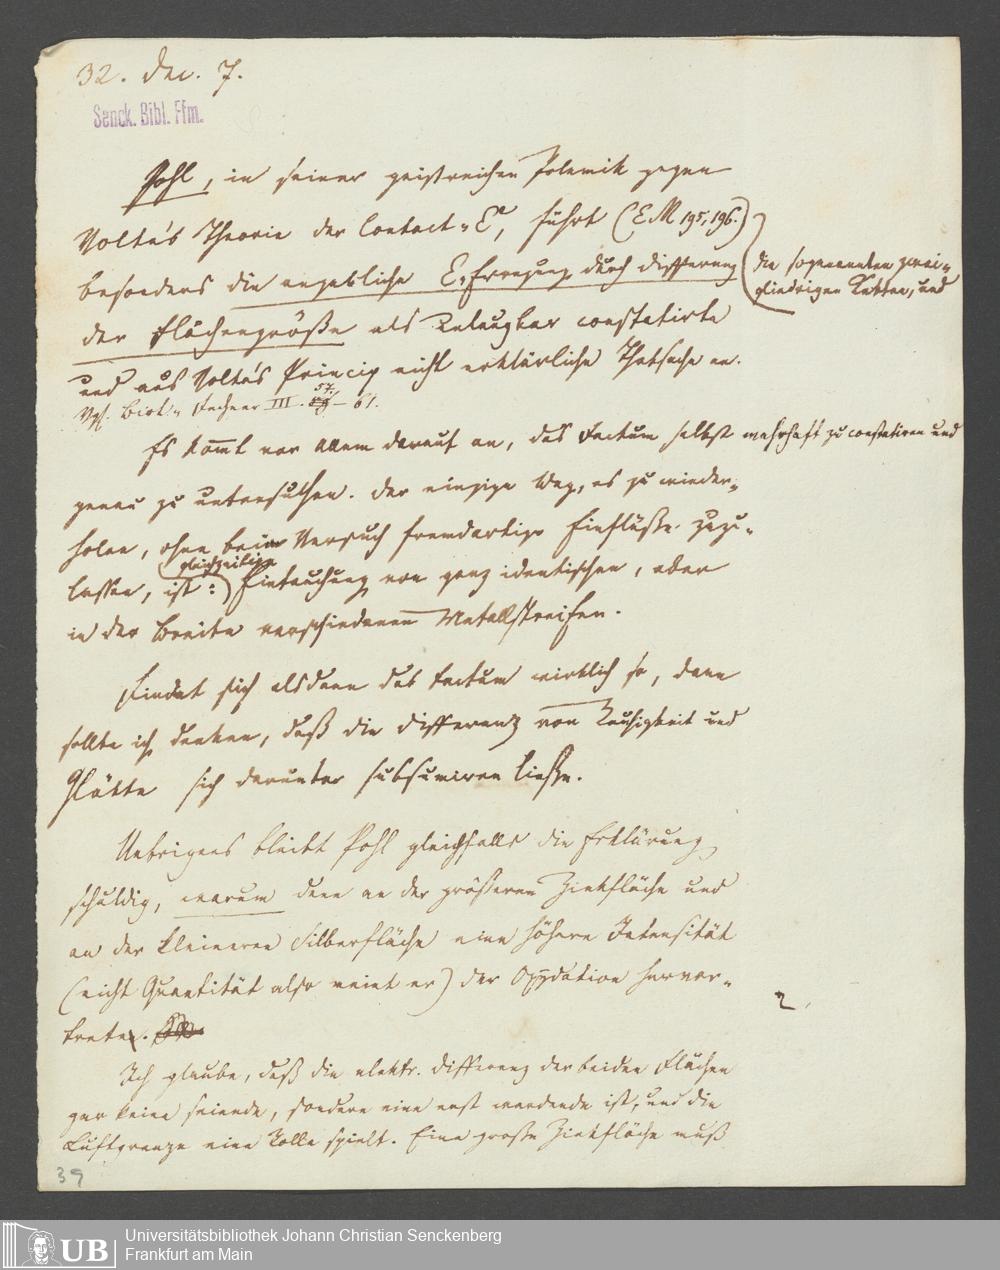 32. Dec. 7.
Senck. Bibl. Ffm.
Pohl, in seiner geistreichen Polemik gegen
Volta's Theorie der Contact-E, führt (EM 195, 196.)
besonders die angebliche E.Erregung durch Differenz
die sogenannten zwei-
gliedrigen Ketten, und
der Flächengröße als unleugbar constatirte
und aus Volta's Princip nicht erklärliche Thatsache an.
Vgl. Biot-Fechner III. 57.–61.
Es kommt vor Allem darauf an, das Factum selbst wahrhaft zu constatiren und
genau zu untersuchen. Der einzige Weg, es zu wieder-
holen, ohne beim Versuch fremdartige Einflüße zuzu-
lassen, ist: gleichzeitige Eintauchung von ganz identischen, aber
in der Breite verschiedenen Metallstreifen.
Findet sich alsdann das Factum wirklich so, dann
sollte ich denken, daß die Differenz von Rauhigkeit und
Glätte sich darunter subsumiren ließe.
Uebrigens bleibt Pohl gleichfalls die Erklärung
schuldig, warum denn an der größeren Zinkfläche und
an der kleineren Silberfläche eine höhere Intensität
(nicht Quantität also meint er) der Oxydation hervor-
trete.
Ich glaube, daß die elektr. Differenz der beiden Flächen
gar keine seiende, sondern eine erst werdende ist, und die
Luftgrenze eine Rolle spielt. Eine große Zinkfläche muß
2,
39
UB
Universitätsbibliothek Johann Christian Senckenberg
Frankfurt am Main